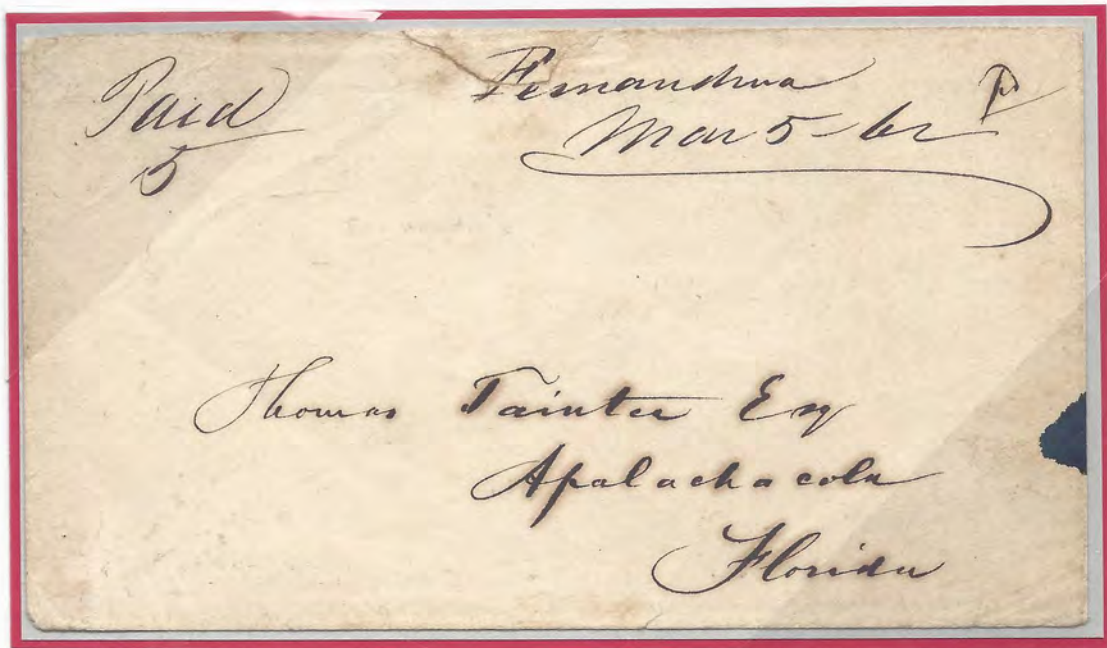 Paid
5
Fernandina
Mar 5 - 62
Thomas Tainter Esq
Apalachacola
Florida